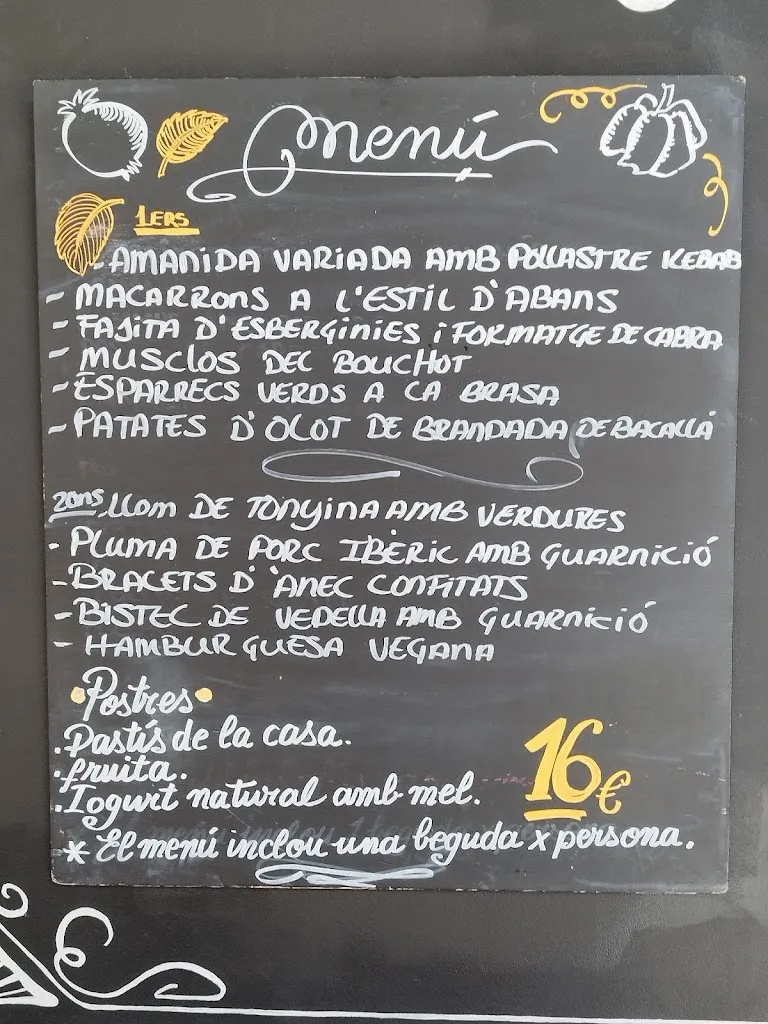 Menú
1ERS
- AMANIDA VARIADA AMB POLLASTRE KEBAB
- MACARRONS A L'ESTIL D'ABANS
- FAJITA D'ESBERGINIES i FORMATGE DE CABRA
- MUSCLOS DEL BOUCHOT
- ESPARRECS VERDS A LA BRASA
- PATATES D'OLOT DE BRANDADA DE BACALLÀ
2ons LLOM DE TONYINA AMB VERDURES
- PLUMA DE PORC IBÈRIC AMB GUARNICIÓ
- BRACETS D'ÀNEC CONFITATS
- BISTEC DE VEDELLA AMB GUARNICIÓ
- HAMBURGUESA VEGANA
• Postres •
. Pastís de la casa.
. fruita.
. Iogurt natural amb mel.
16€
* El menú inclou una beguda x persona.